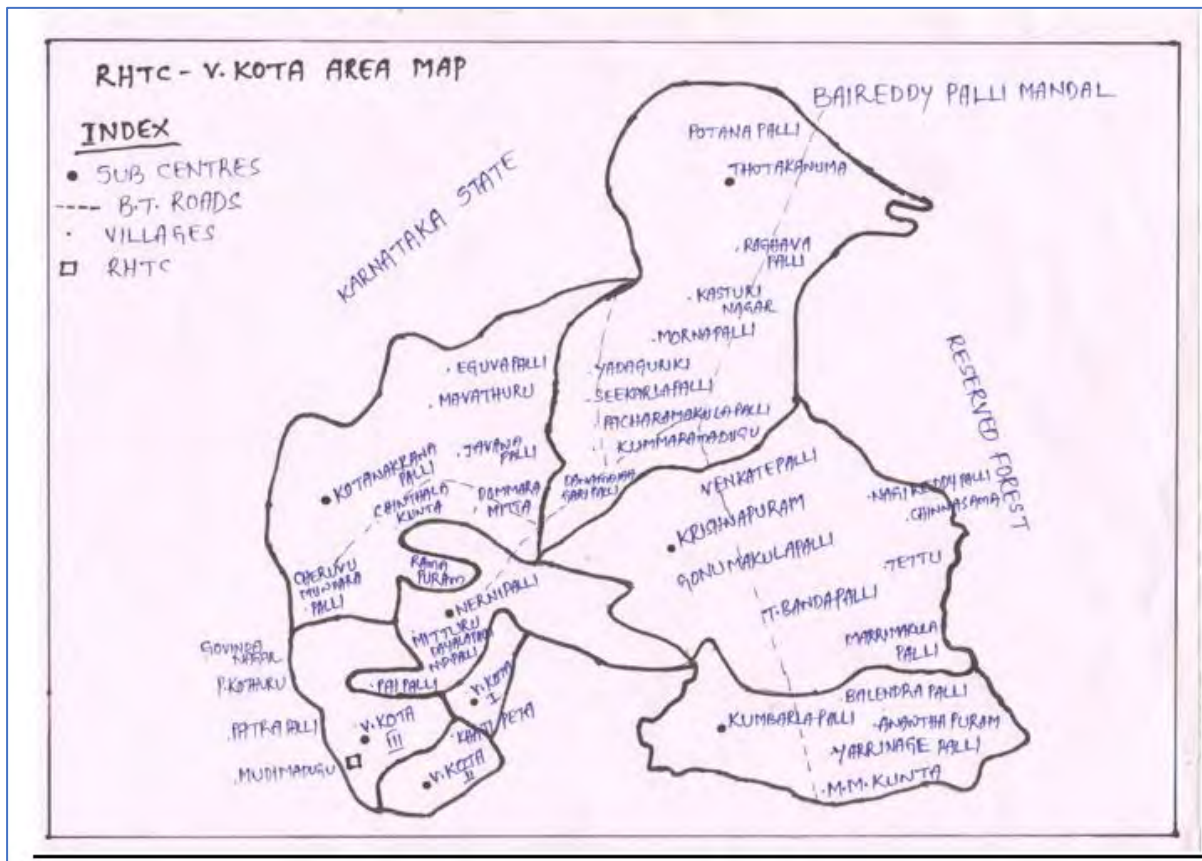 RHTC - V. KOTA AREA MAP
INDEX
SUB CENTRES
B.T. ROADS
VILLAGES
RHTC
KARNATAKA STATE
BAIREDDY PALLI MANDAL
RESERVED FOREST
POTANA PALLI
THOTAKANUMA
RAGHAVA
PALLI
KASTURI
NAGAR
MORNAPALLI
YADAGURIKI
SEEKARLAPALLI
PATCHARAMAKULAPALLI
KUMMARAMADUGU
GARIPALLI
EGUVAPALLI
MAVATHURU
JAVANA
PALLI
KOTANAKRANA
PALLI
CHINTHALA
KUNTA
DOMMARA
MITTA
CHERUVU
MUNDARA
PALLI
RAMA
PURAM
NERNIPALLI
MITTURU
N.D.PALLI
PAIPALLI
GOVINDA
NAGAR
P.KOTHURU
PATRAPALLI
MUDIMADUGU
V. KOTA
III
V. KOTA
I
KHAJI PETA
V. KOTA
II
VENKATEPALLI
KRISHNAPURAM
GONUMAKULAPALLI
NAGIREDDYPALLI
CHINNASAMA
TETTU
T. BANDAPALLI
MARRIMAKULA
PALLI
BALENDRA PALLI
KUMBARLAPALLI
ANANTHA PURAM
YARRINAGE PALLI
M.M. KUNTA